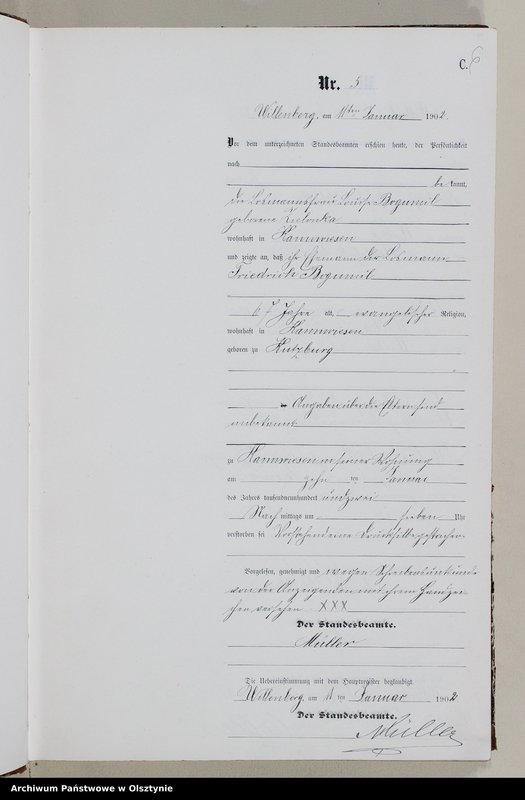 C.
6
Nr. 5
Willenberg, am 11ten Januar 1902.
Vor dem unterzeichneten Standesbeamten erschien heute, der Persönlichkeit
nach
be kannt,
die Losmannsfrau Louise Bogumil
geborene Zielonka
wohnhaft in Kannwiesen
und zeigte an, daß ihr Ehemann der Losmann
Friedrich Bogumil
67 Jahre alt, evangelischer Religion,
wohnhaft in Kannwiesen
geboren zu Kutzburg
Angaben über die Eltern sind
unbekannt
zu Kannwiesen in seiner Wohnung
am zehn ten Januar
des Jahres tausendneunhundert und zwei
Nach mittags um sieben Uhr
verstorben sei Vorstehend eine Druckstelle gestrichen.
Vorgelesen, genehmigt und wegen Schreibensunkunde
von der Anzeigenden mit ihrem Handzei-
chen versehen XXX
Der Standesbeamte.
Müller
Die Uebereinstimmung mit dem Hauptregister beglaubigt
Willenberg, am 11 ten Januar 1902
Der Standesbeamte.
Müller
Archiwum Państwowe w Olsztynie